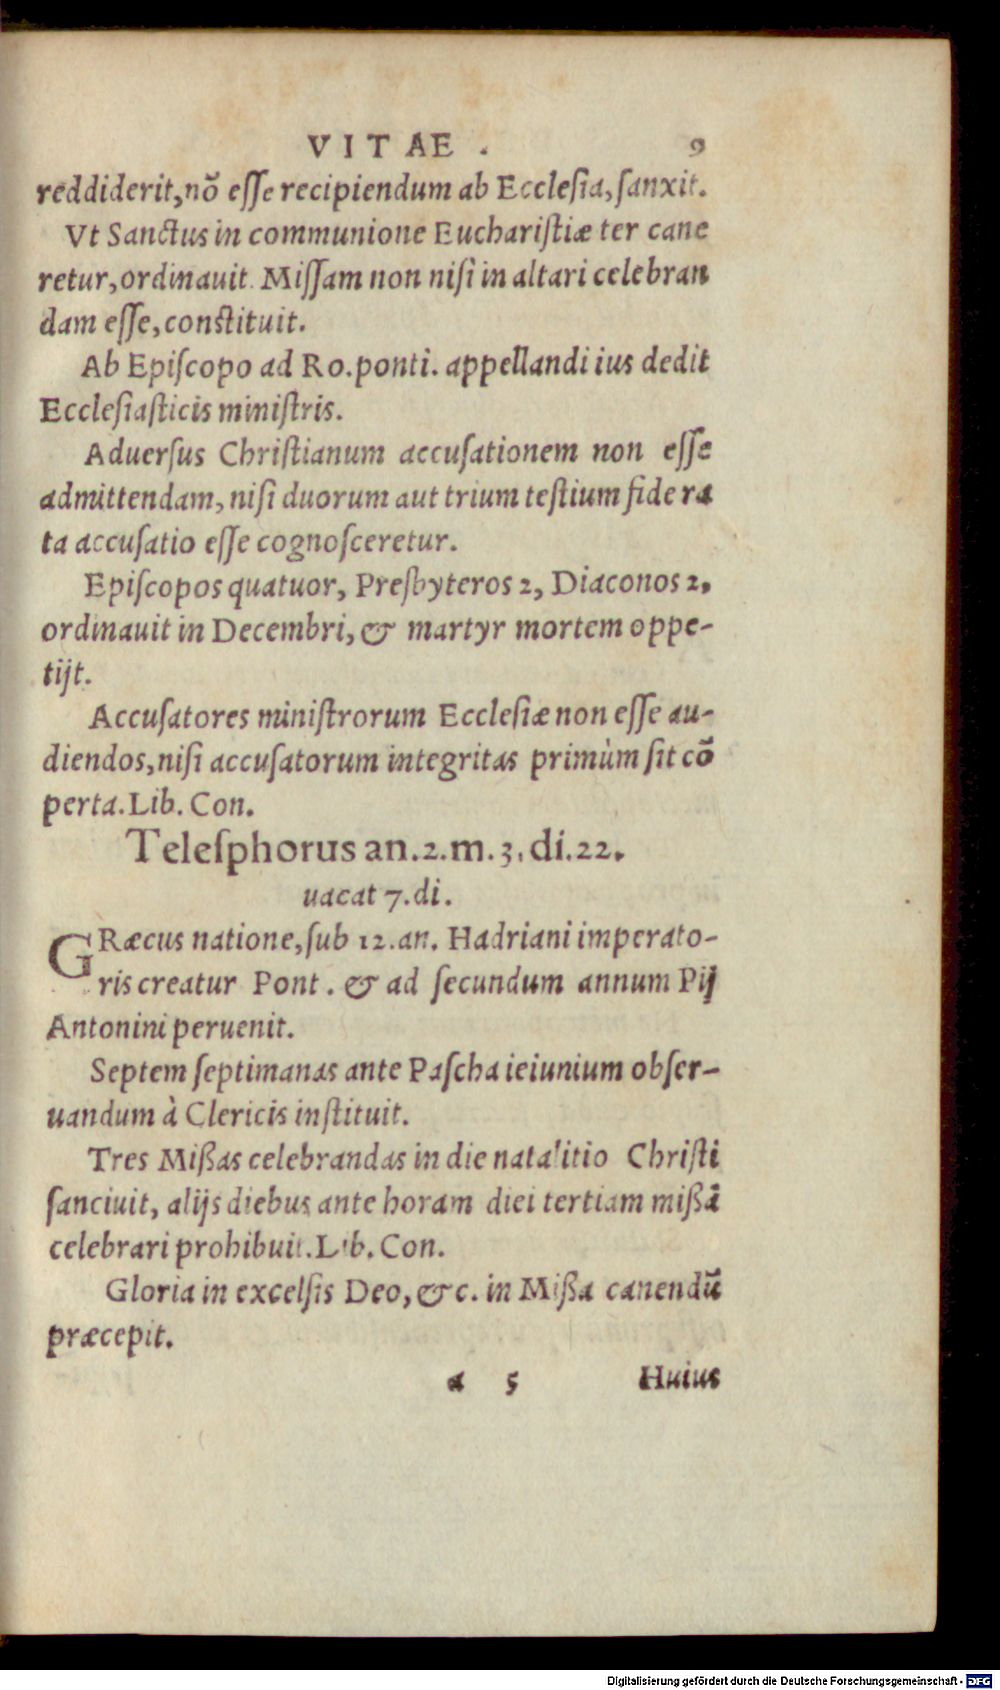 VITAE. 9
reddiderit,nõ eſſe recipiendum ab Eccleſia,ſanxit.
Vt Sanctus in communione Euchariſtiæ ter cane
retur,ordinauit. Miſſam non niſi in altari celebran
dam eſſe,conſtituit.
Ab Epiſcopo ad Ro.ponti. appellandi ius dedit
Eccleſiaſticis miniſtris.
Aduerſus Chriſtianum accuſationem non eſſe
admittendam,niſi duorum aut trium teſtium fide ra
ta accuſatio eſſe cognoſceretur.
Epiſcopos quatuor, Preſbyteros 2, Diaconos 2,
ordinauit in Decembri,& martyr mortem oppe-
tijt.
Accuſatores miniſtrorum Eccleſiæ non eſſe au-
diendos,niſi accuſatorum integritas primùm ſit cõ
perta.Lib. Con.
Teleſphorus an.2.m.3.di.22.
uacat 7.di.
GRæcus natione,ſub 12.an. Hadriani imperato-
ris creatur Pont. & ad ſecundum annum Pij
Antonini peruenit.
Septem ſeptimanas ante Paſcha ieiunium obſer-
uandum à Clericis inſtituit.
Tres Mißas celebrandas in die natalitio Chriſti
ſanciuit, alijs diebus ante horam diei tertiam mißã
celebrari prohibuit.Lib. Con.
Gloria in excelſis Deo,&c. in Mißa canendũ
præcepit.
a 5 Huius
Digitalisierung gefördert durch die Deutsche Forschungsgemeinschaft - DFG